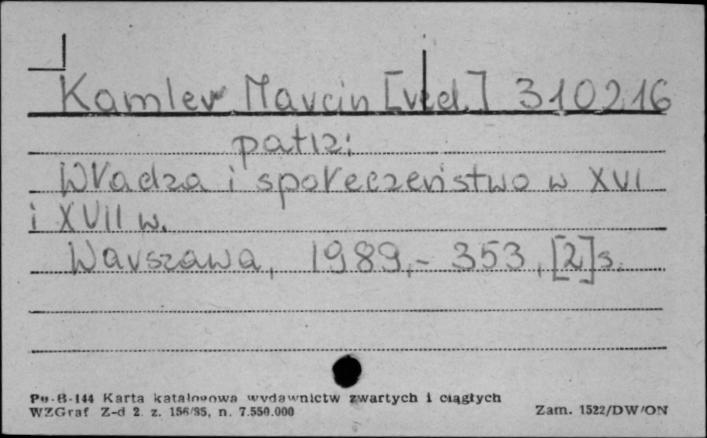 Kamler Marcin [red.] 310216
patrz:
Władza i społeczeństwo w XVI
i XVII w.
Warszawa, 1989,- 353, [2]s.
Pu-B-144 Karta katalogowa wydawnictw zwartych i ciągłych
WZGraf Z-d 2 z. 156/85, n. 7.550.000
Zam. 1522/DW/ON